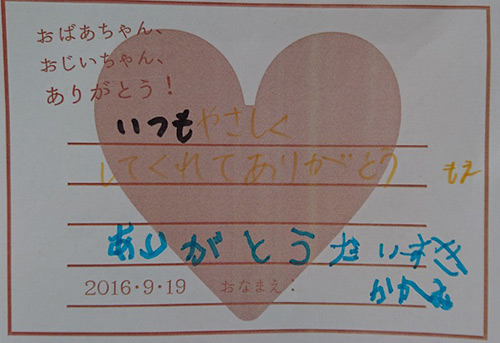 おばあちゃん、
おじいちゃん、
ありがとう!
いつもやさしく
してくれてありがとう もえ
ありがとうだいすき
2016・9・19 おなまえ: